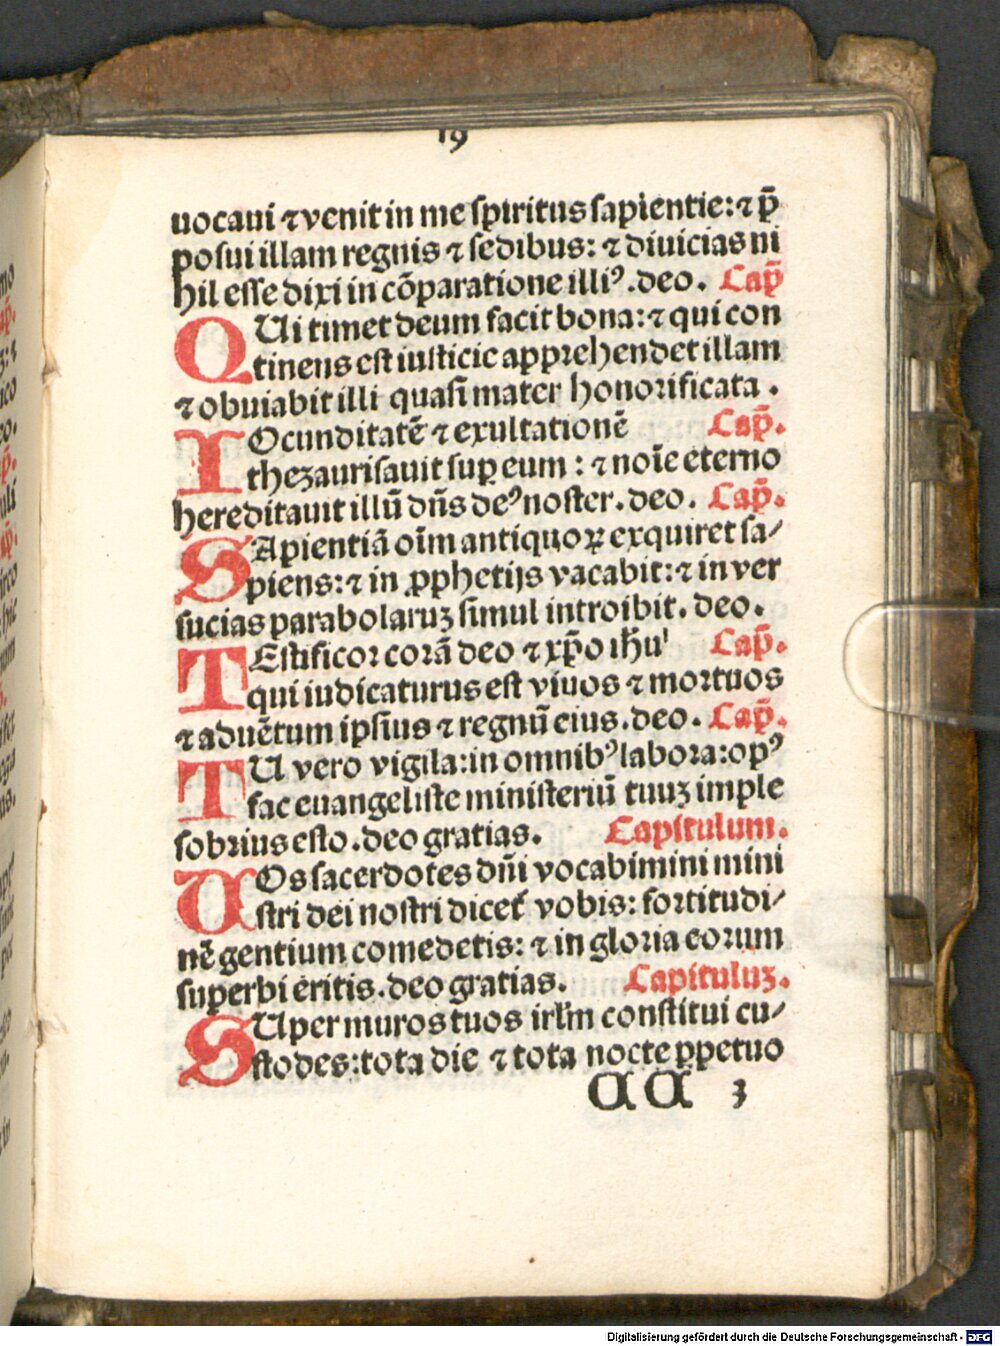 19
uocaui ⁊ venit in me ſpiritus ſapientie: ⁊ p̄
poſui illam regnis ⁊ ſedibus: ⁊ diuicias ni
hil eſſe dixi in cōparatione illiꝰ. deo. Cap̄
QUi timet deum facit bona: ⁊ qui con
tinens eſt iuſticie apprehendet illam
⁊ obuiabit illi quaſi mater honorificata.
IOcunditatē ⁊ exultationē Cap̄.
theʒauriſauit ſuꝑ eum: ⁊ noīe eterno
hereditauit illū dn̄s deꝰ noſter. deo. Cap̄.
SApientiā oīm antiquoꝝ exquiret ſa⸗
piens: ⁊ in ꝓphetijs vacabit: ⁊ in ver
ſucias parabolaruʒ ſimul introibit. deo.
TEſtificor corā deo ⁊ xp̄o ih̄u' Cap̄.
qui iudicaturus eſt viuos ⁊ mortuos
⁊ aduētum ipſius ⁊ regnū eius. deo. Cap̄.
TU vero vigila: in omnibꝰ labora: opꝰ
fac euangeliſte miniſteriū tuuʒ imple
ſobrius eſto. deo gratias. Capitulum.
UOs ſacerdotes dn̄i vocabimini mini
ſtri dei noſtri dicet᷒ vobis: fortitudi⸗
nē gentium comedetis: ⁊ in gloria eorum
ſuperbi eritis. deo gratias. Capituluʒ.
SUper muros tuos irl̄m conſtitui cu⸗
ſtodes: tota die ⁊ tota nocte ꝑpetuo
AA 3
Digitalisierung gefördert durch die Deutsche Forschungsgemeinschaft - DFG